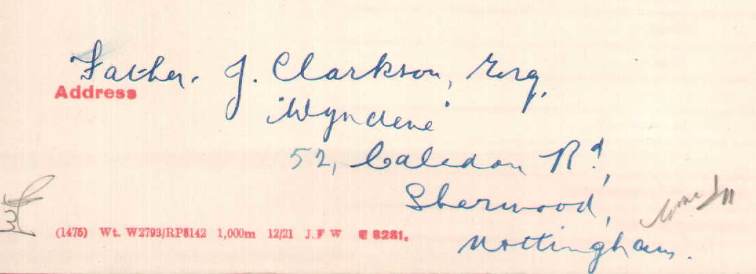 Father. J. Clarkson, Esq.
Address
"Wyndene"
52, Caledon Rd,
Sherwood,
Nottingham.
(1475) Wt. W2793/RP8142 1,000m 12/21 J.F W E 8281.